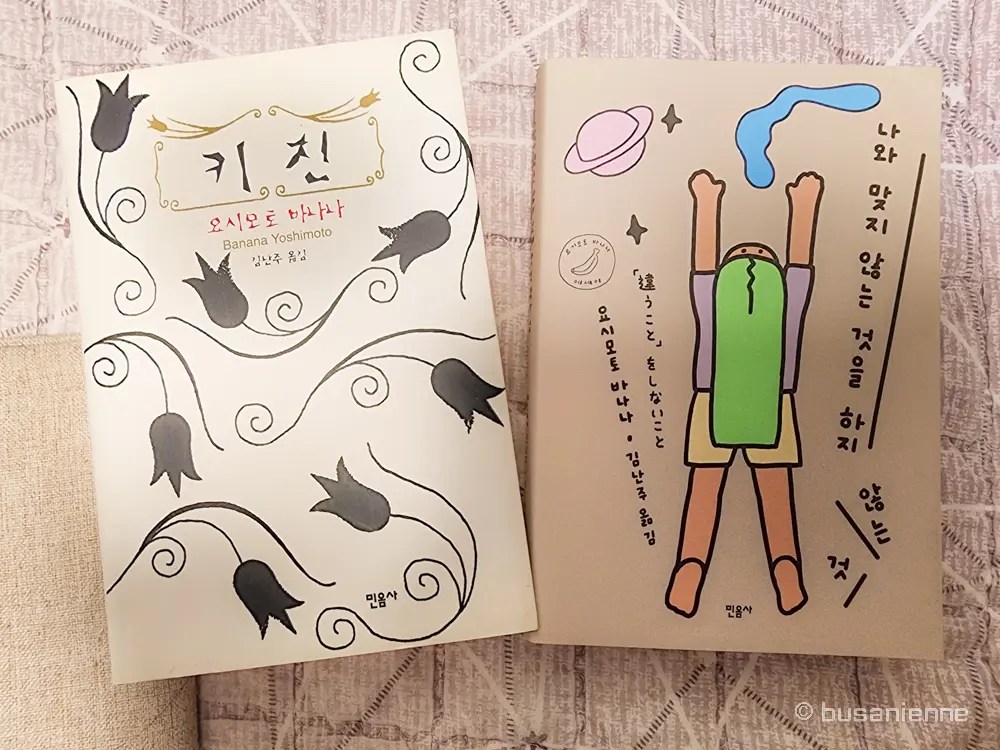 키친
요시모토 바나나
Banana Yoshimoto
김난주 옮김
민음사
나와 맞지 않는 것을 하지
않는
것
요시모토 바나나
에세이
「違うこと」をしないこと
요시모토 바나나 • 김난주 옮김
민음사
© busanienne